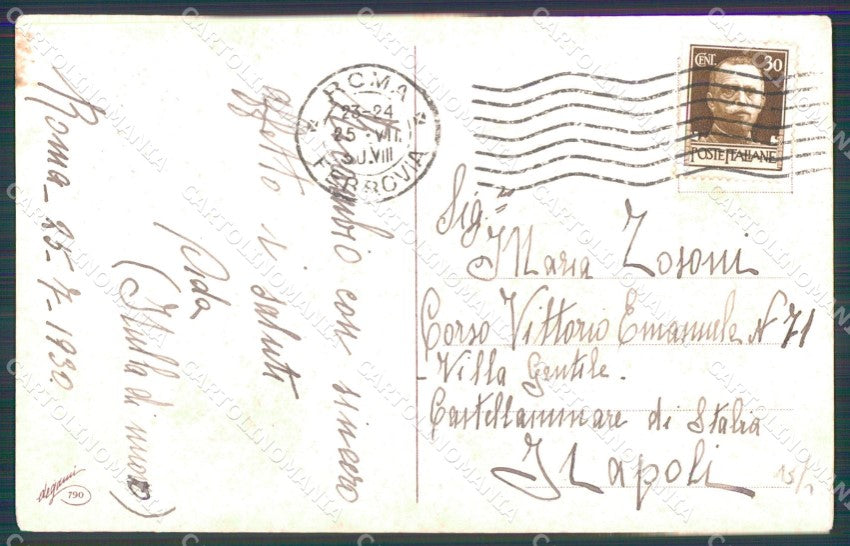 Roma - 25-7-1930.
Scambio con sincero
affetto i saluti
(Nulla di nuovo)
degami
790
ROMA
23-24
25 · VII
30.VIII
FERROVIA
CENT. 30
POSTE ITALIANE
Sig.na
Maria Zosoni
Corso Vittorio Emanuele N 71
- Villa Gentile.
Castellammare di Stalia
Napoli
CARTOLINOMANIA